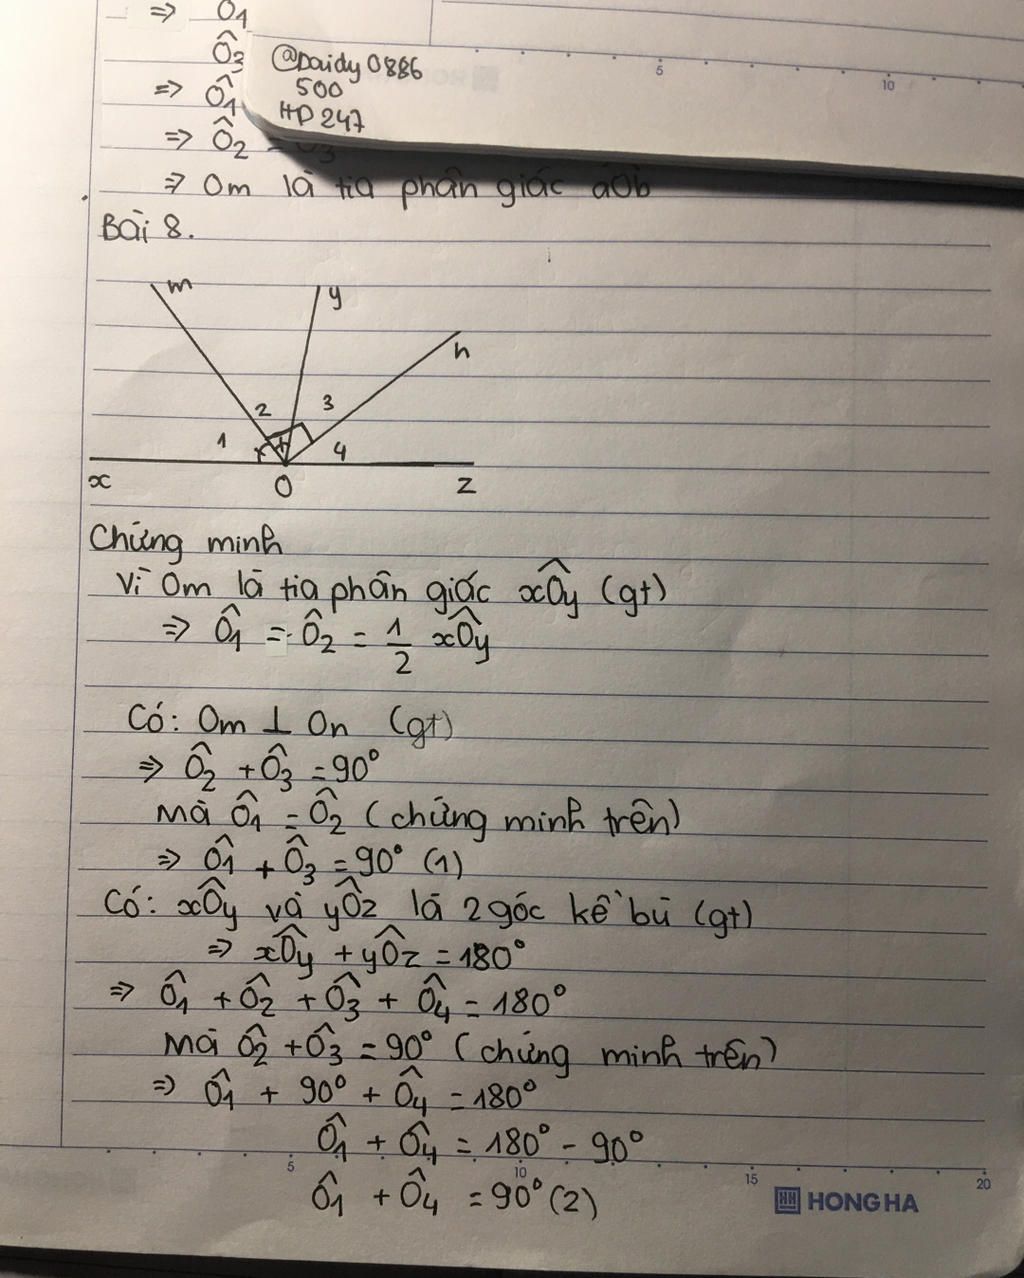 => Ô1
Ô3
@Daidy0886
=> Ô1
500
HD 247
=> Ô2 = Ô3
=> Om là tia phân giác aOb
Bài 8.
m
y
n
2
3
1
4
x
O
z
Chứng minh
Vì Om là tia phân giác xÔy (gt)
=> Ô1 = Ô2 = 1/2 xÔy
Có: Om ⊥ On (gt)
=> Ô2 + Ô3 = 90°
Mà Ô1 = Ô2 (chứng minh trên)
=> Ô1 + Ô3 = 90° (1)
Có: xÔy và yÔz là 2 góc kề bù (gt)
=> xÔy + yÔz = 180°
=> Ô1 + Ô2 + Ô3 + Ô4 = 180°
Mà Ô2 + Ô3 = 90° (chứng minh trên)
=> Ô1 + 90° + Ô4 = 180°
Ô1 + Ô4 = 180° - 90°
Ô1 + Ô4 = 90° (2)
5 10
5 10 15 20
HH HONG HA